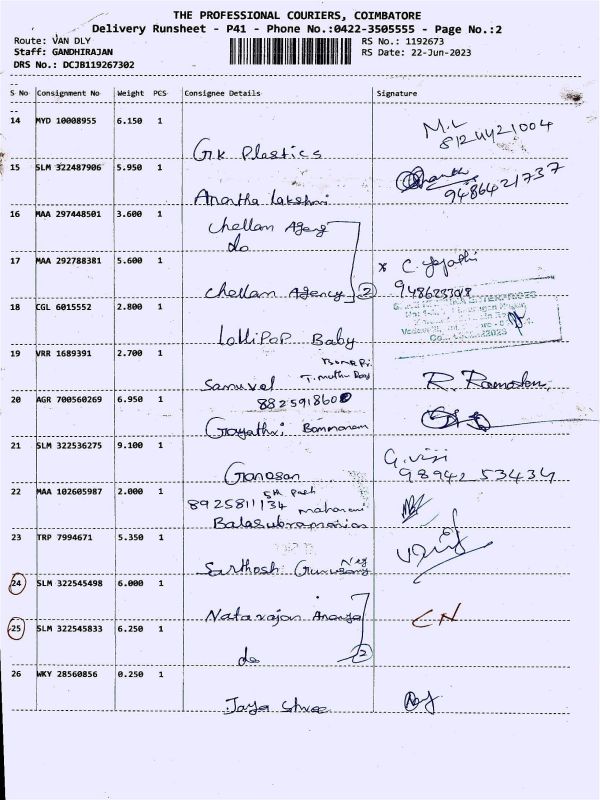 THE PROFESSIONAL COURIERS, COIMBATORE
Delivery Runsheet - P41 - Phone No.:0422-3505555 - Page No.:2
Route: VAN DLY
RS No.: 1192673
Staff: GANDHIRAJAN
RS Date: 22-Jun-2023
DRS No.: DCJB119267302
S No Consignment No Weight PCS Consignee Details Signature
14 MYD 10008955 6.150 1
M.L
GK Plastics
15 SLM 322487906 5.950 1
9486421737
Anantha Lakshmi
16 MAA 297448501 3.600 1
Chellam Agency
do
17 MAA 292788381 5.600 1
Chellam Agency 2
18 CGL 6015552 2.800 1
Lollipop Baby
19 VRR 1689391 2.700 1
Samuvel
20 AGR 700560269 6.950 1
8825918600
Gayathri
21 SLM 322536275 9.100 1
G. Viji
98942 53434
Ganesan
22 MAA 102605987 2.000 1
8925811134
Balasubramanian
23 TRP 7994671 5.350 1
Santhosh
24 SLM 322545498 6.000 1
Natarajan
CN
25 SLM 322545833 6.250 1
do 2
26 WKY 28560856 0.250 1
Jaya Shree